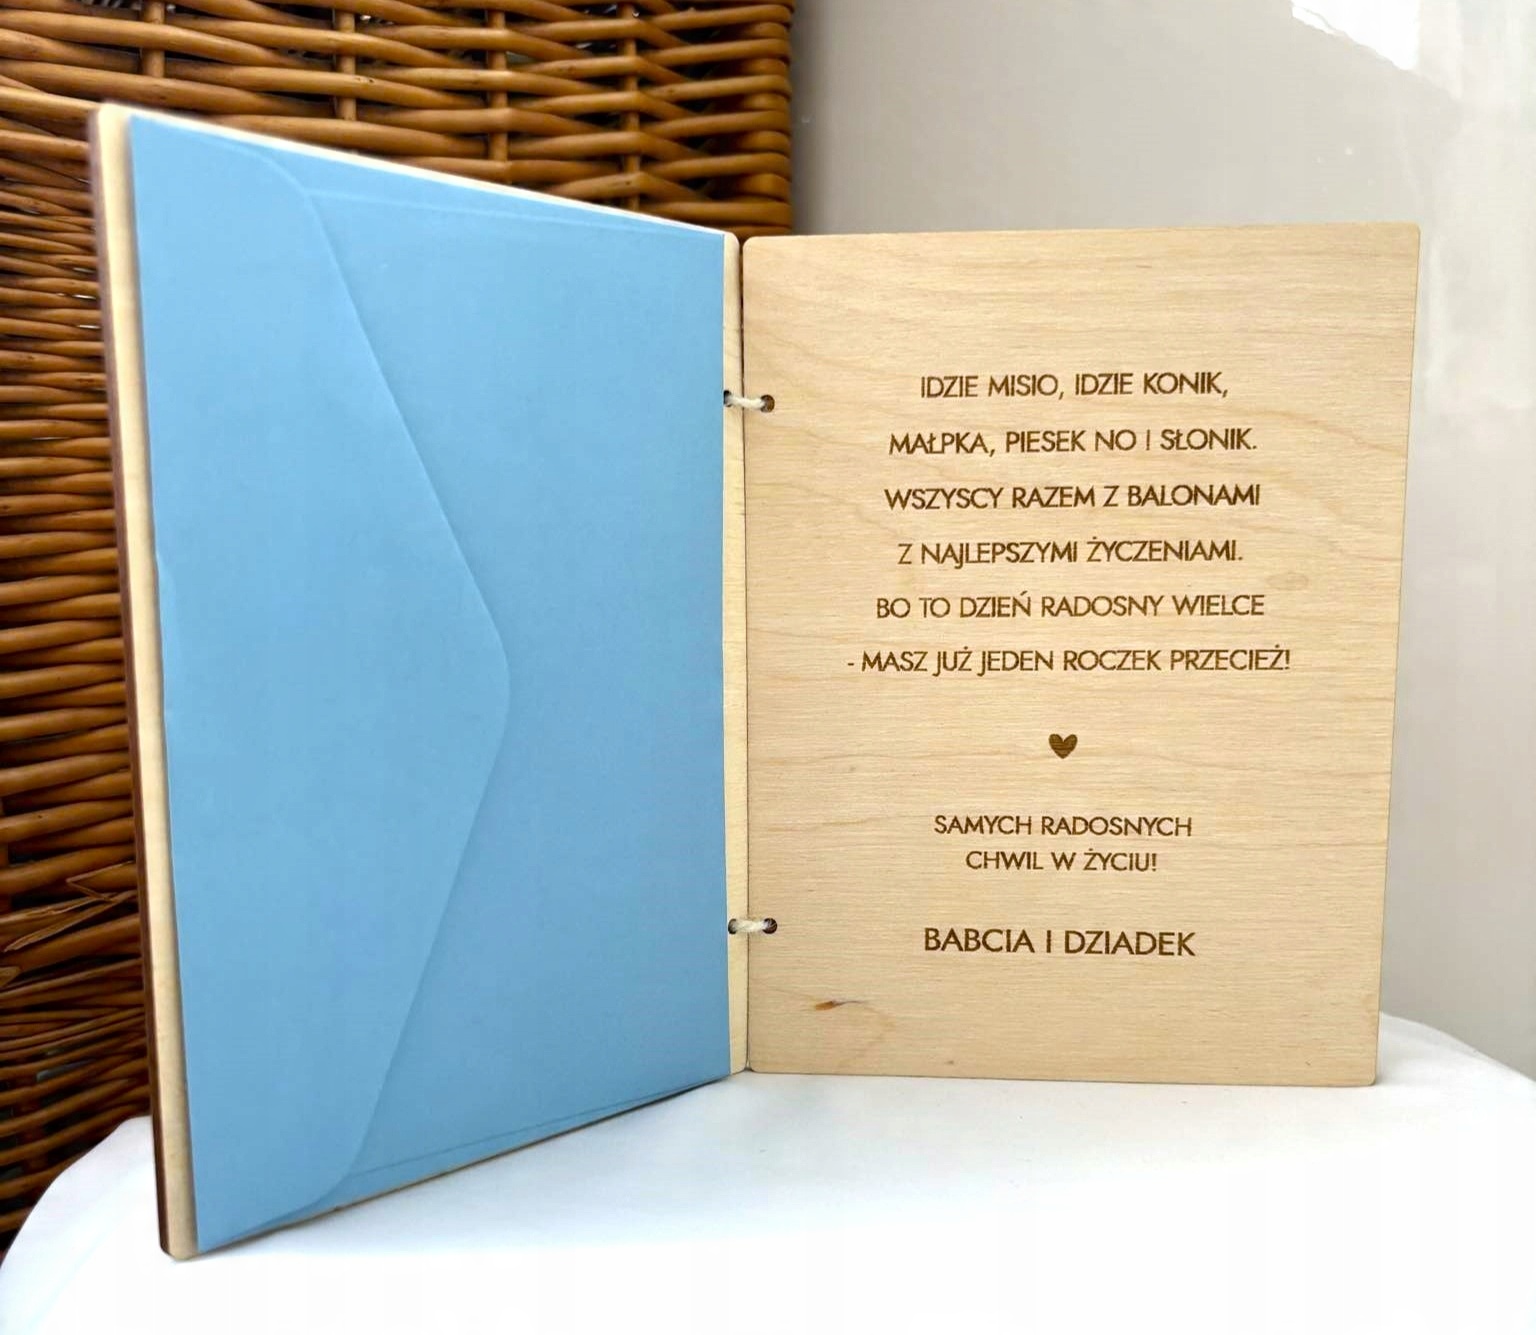 IDZIE MISIO, IDZIE KONIK,
MAŁPKA, PIESEK NO I SŁONIK.
WSZYSCY RAZEM Z BALONAMI
Z NAJLEPSZYMI ŻYCZENIAMI.
BO TO DZIEŃ RADOSNY WIELCE
- MASZ JUŻ JEDEN ROCZEK PRZECIEŻ!
SAMYCH RADOSNYCH
CHWIL W ŻYCIU!
BABCIA I DZIADEK